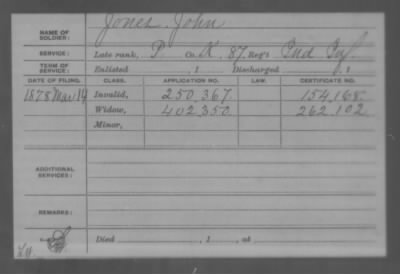 NAME OF SOLDIER: Jones, John
SERVICE: Late rank, P. Co. K, 87 Reg't Ind Inf.
TERM OF SERVICE: Enlisted , 1 Discharged , 1
DATE OF FILING. CLASS. APPLICATION NO. LAW. CERTIFICATE NO.
1878 Mar 14 Invalid, 250,367 154,168
Widow, 402,350 262,102
Minor,
ADDITIONAL SERVICES:
REMARKS:
Died , 1 , at